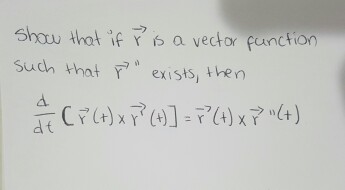 show that if r⃗ is a vector function
such that r⃗ " exists, then
d/dt [r⃗(t) x r⃗'(t)] = r⃗(t) x r⃗ "(t)